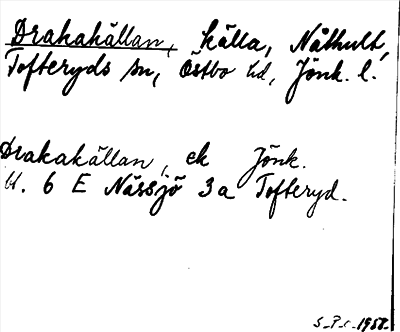 Drakakällan, källa, Nåthult,
Tofteryds sn, Östbo hd, Jönk. l.
Drakakällan, ek Jönk.
bl. 6 E Nässjö 3a Tofteryd.
1958